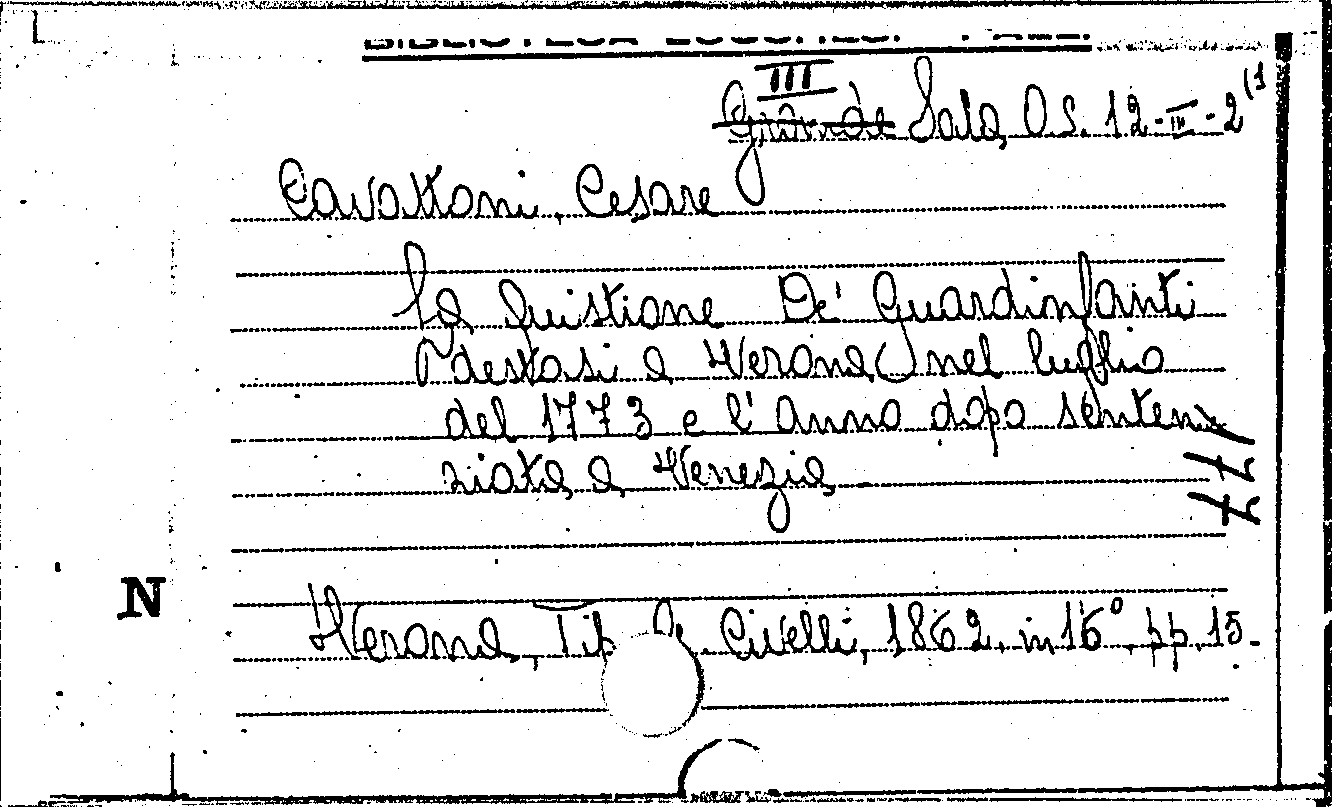 III
Grande Sala O.S. 12-III-2 (1
Cavattoni, Cesare
La Quistione De' Guardinfanti
destasi a Verona nel luglio
del 1773 e l'anno dopo senten
ziata a Venezia
N
Verona, Tip. Civelli, 1862. in 16°. pp. 15.